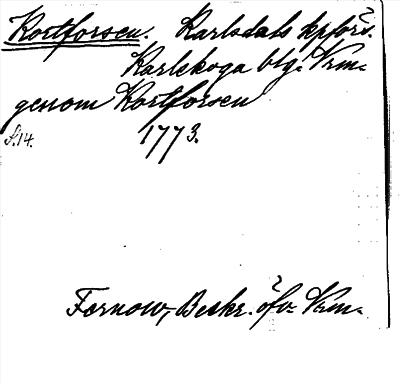 Kortforsen. Karlsdals kpförs.
Karlskoga btg. Vrm.
genom Kortforsen
S.14. 1773.
Fernow, Beskr. öfv. Vrm.